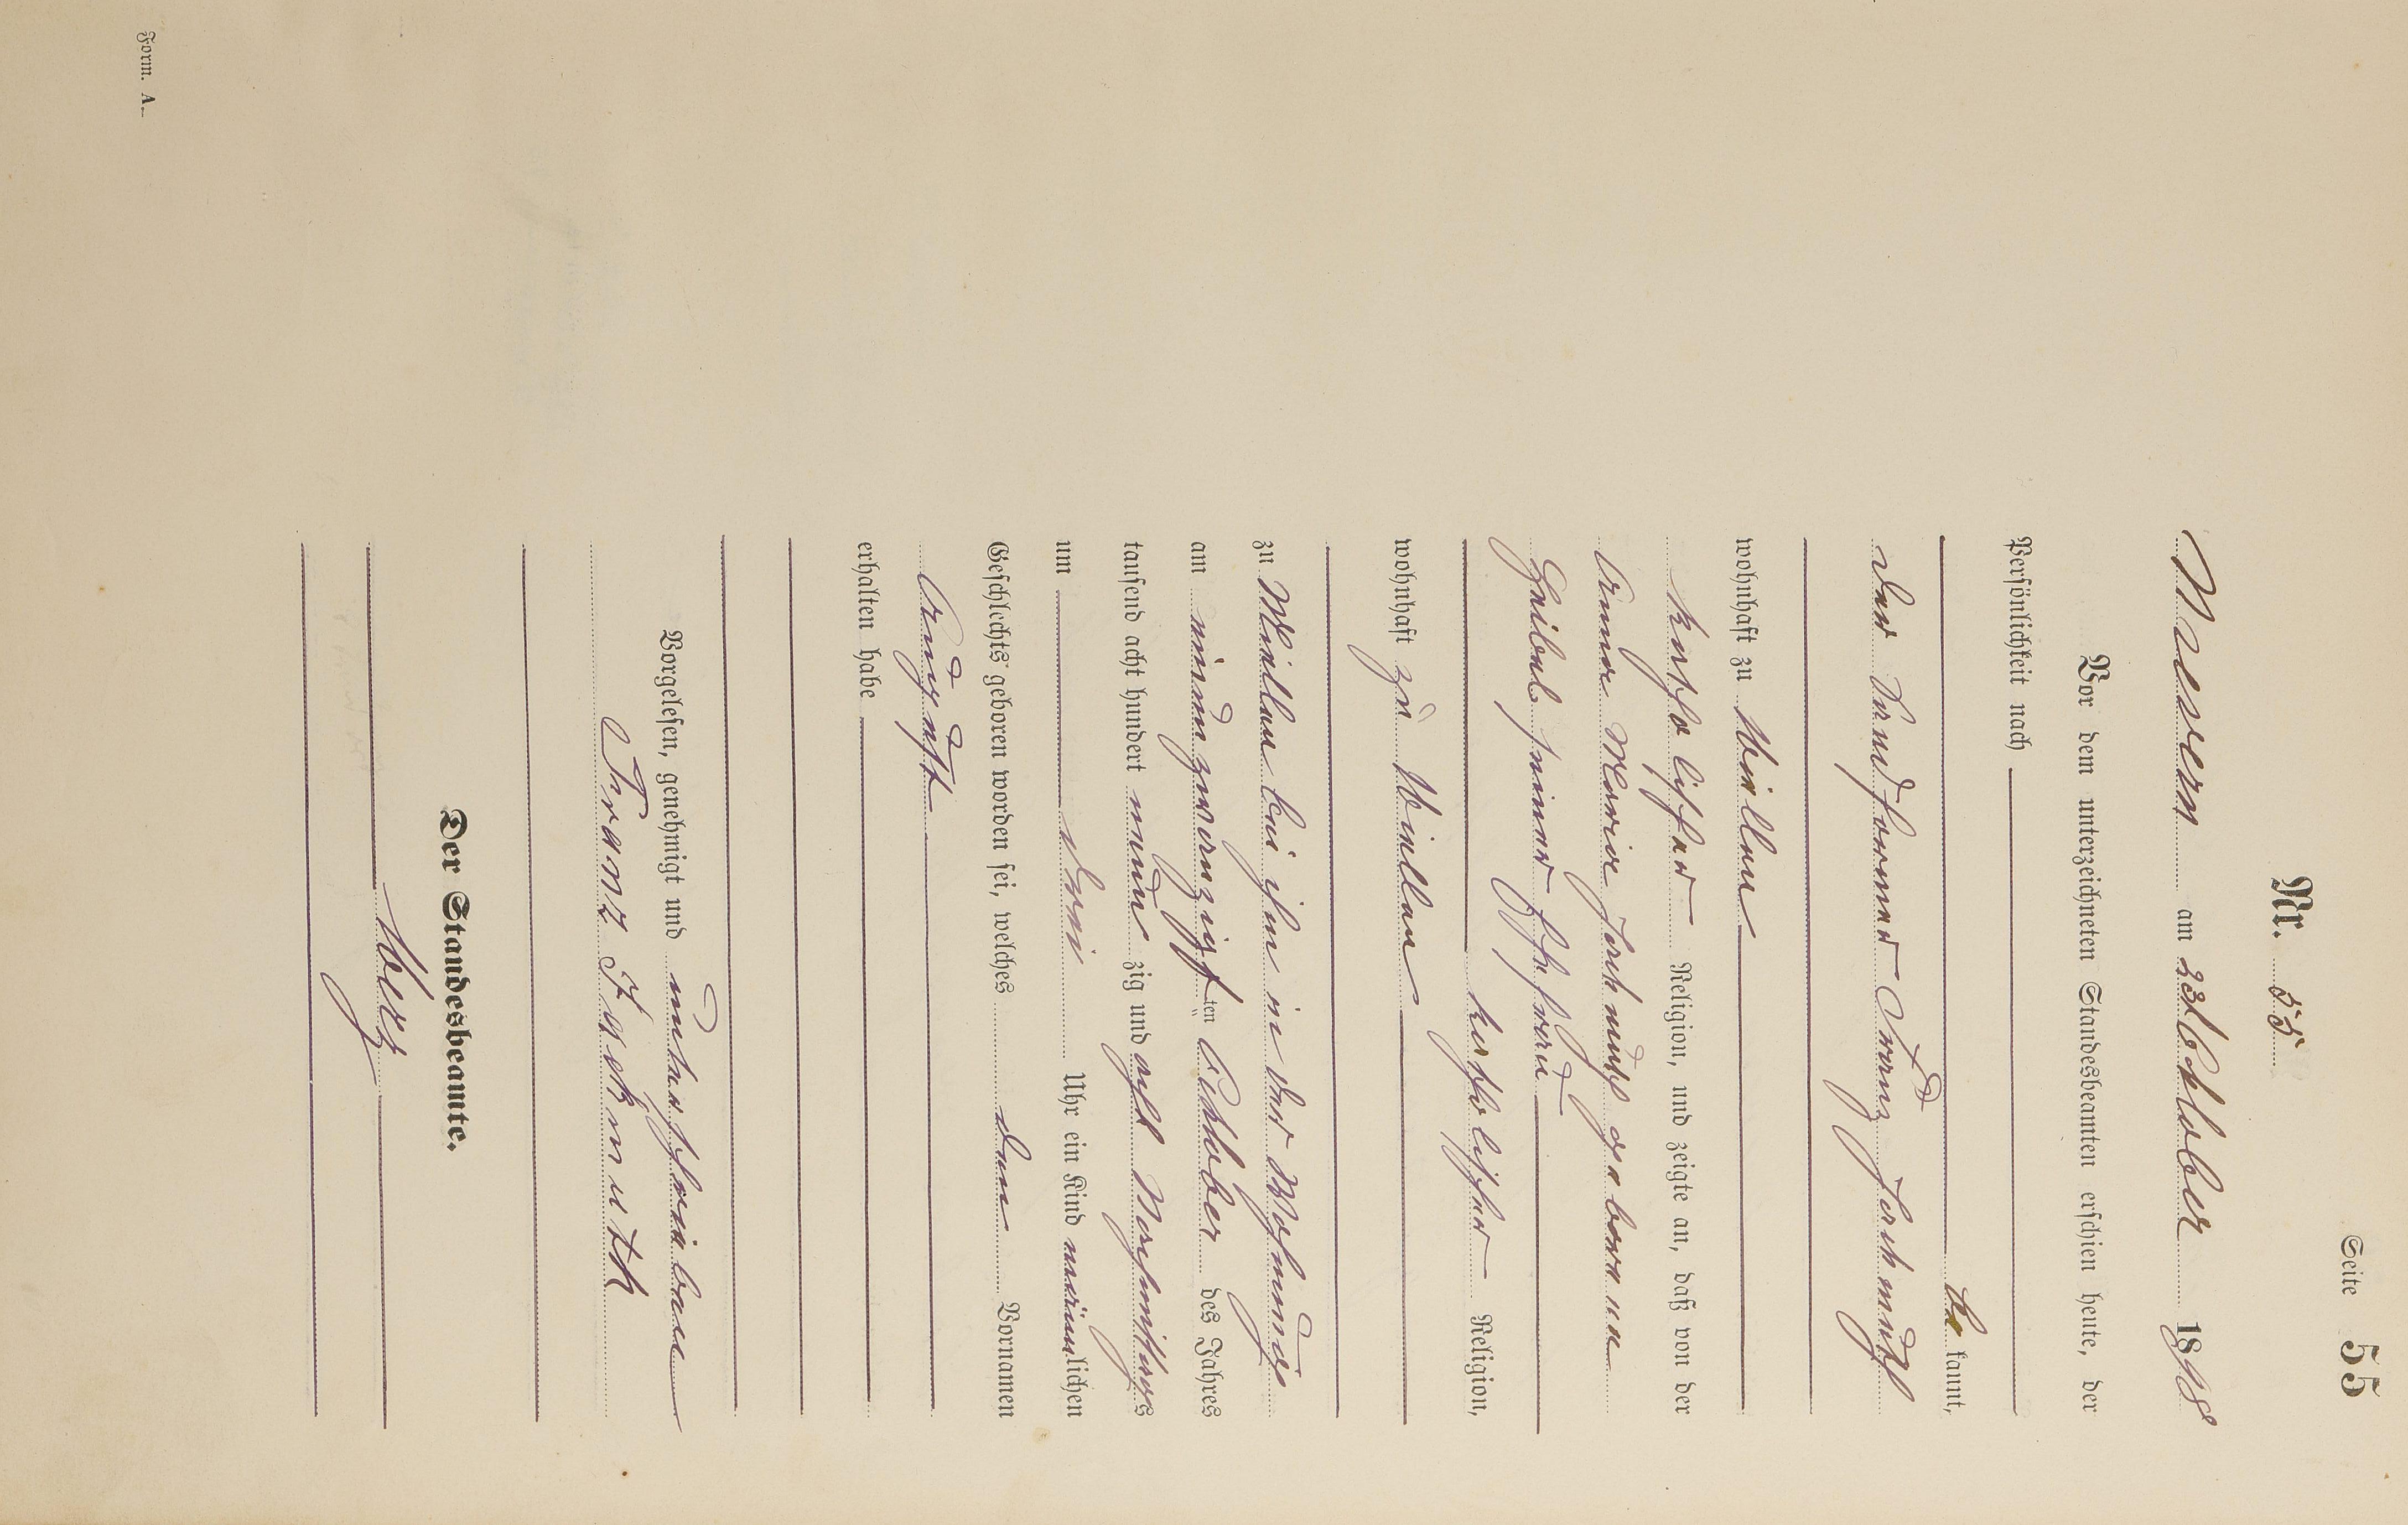 Seite 55
Nr. 55.
Nievern am 23 Oktober 1898
Vor dem unterzeichneten Standesbeamten erschien heute, der
Persönlichkeit nach
be kannt,
der Sandformer Franz Jackmuth
wohnhaft zu Miellen
katholischer Religion, und zeigte an, daß von der
Anna Maria Jackmuth geborene
Geibel seiner Ehefrau
katholischer Religion,
wohnhaft zu Miellen
zu Miellen bei ihm in der Wohnung
am ten Oktober des Jahres
tausend acht hundert neun zig und acht Nachmittags
um drei Uhr ein Kind männlichen
Geschlechts geboren worden sei, welches den Vornamen
August
erhalten habe
Vorgelesen, genehmigt und unterschrieben
Franz Jackmuth
Der Standesbeamte.
Merz
Form. A.